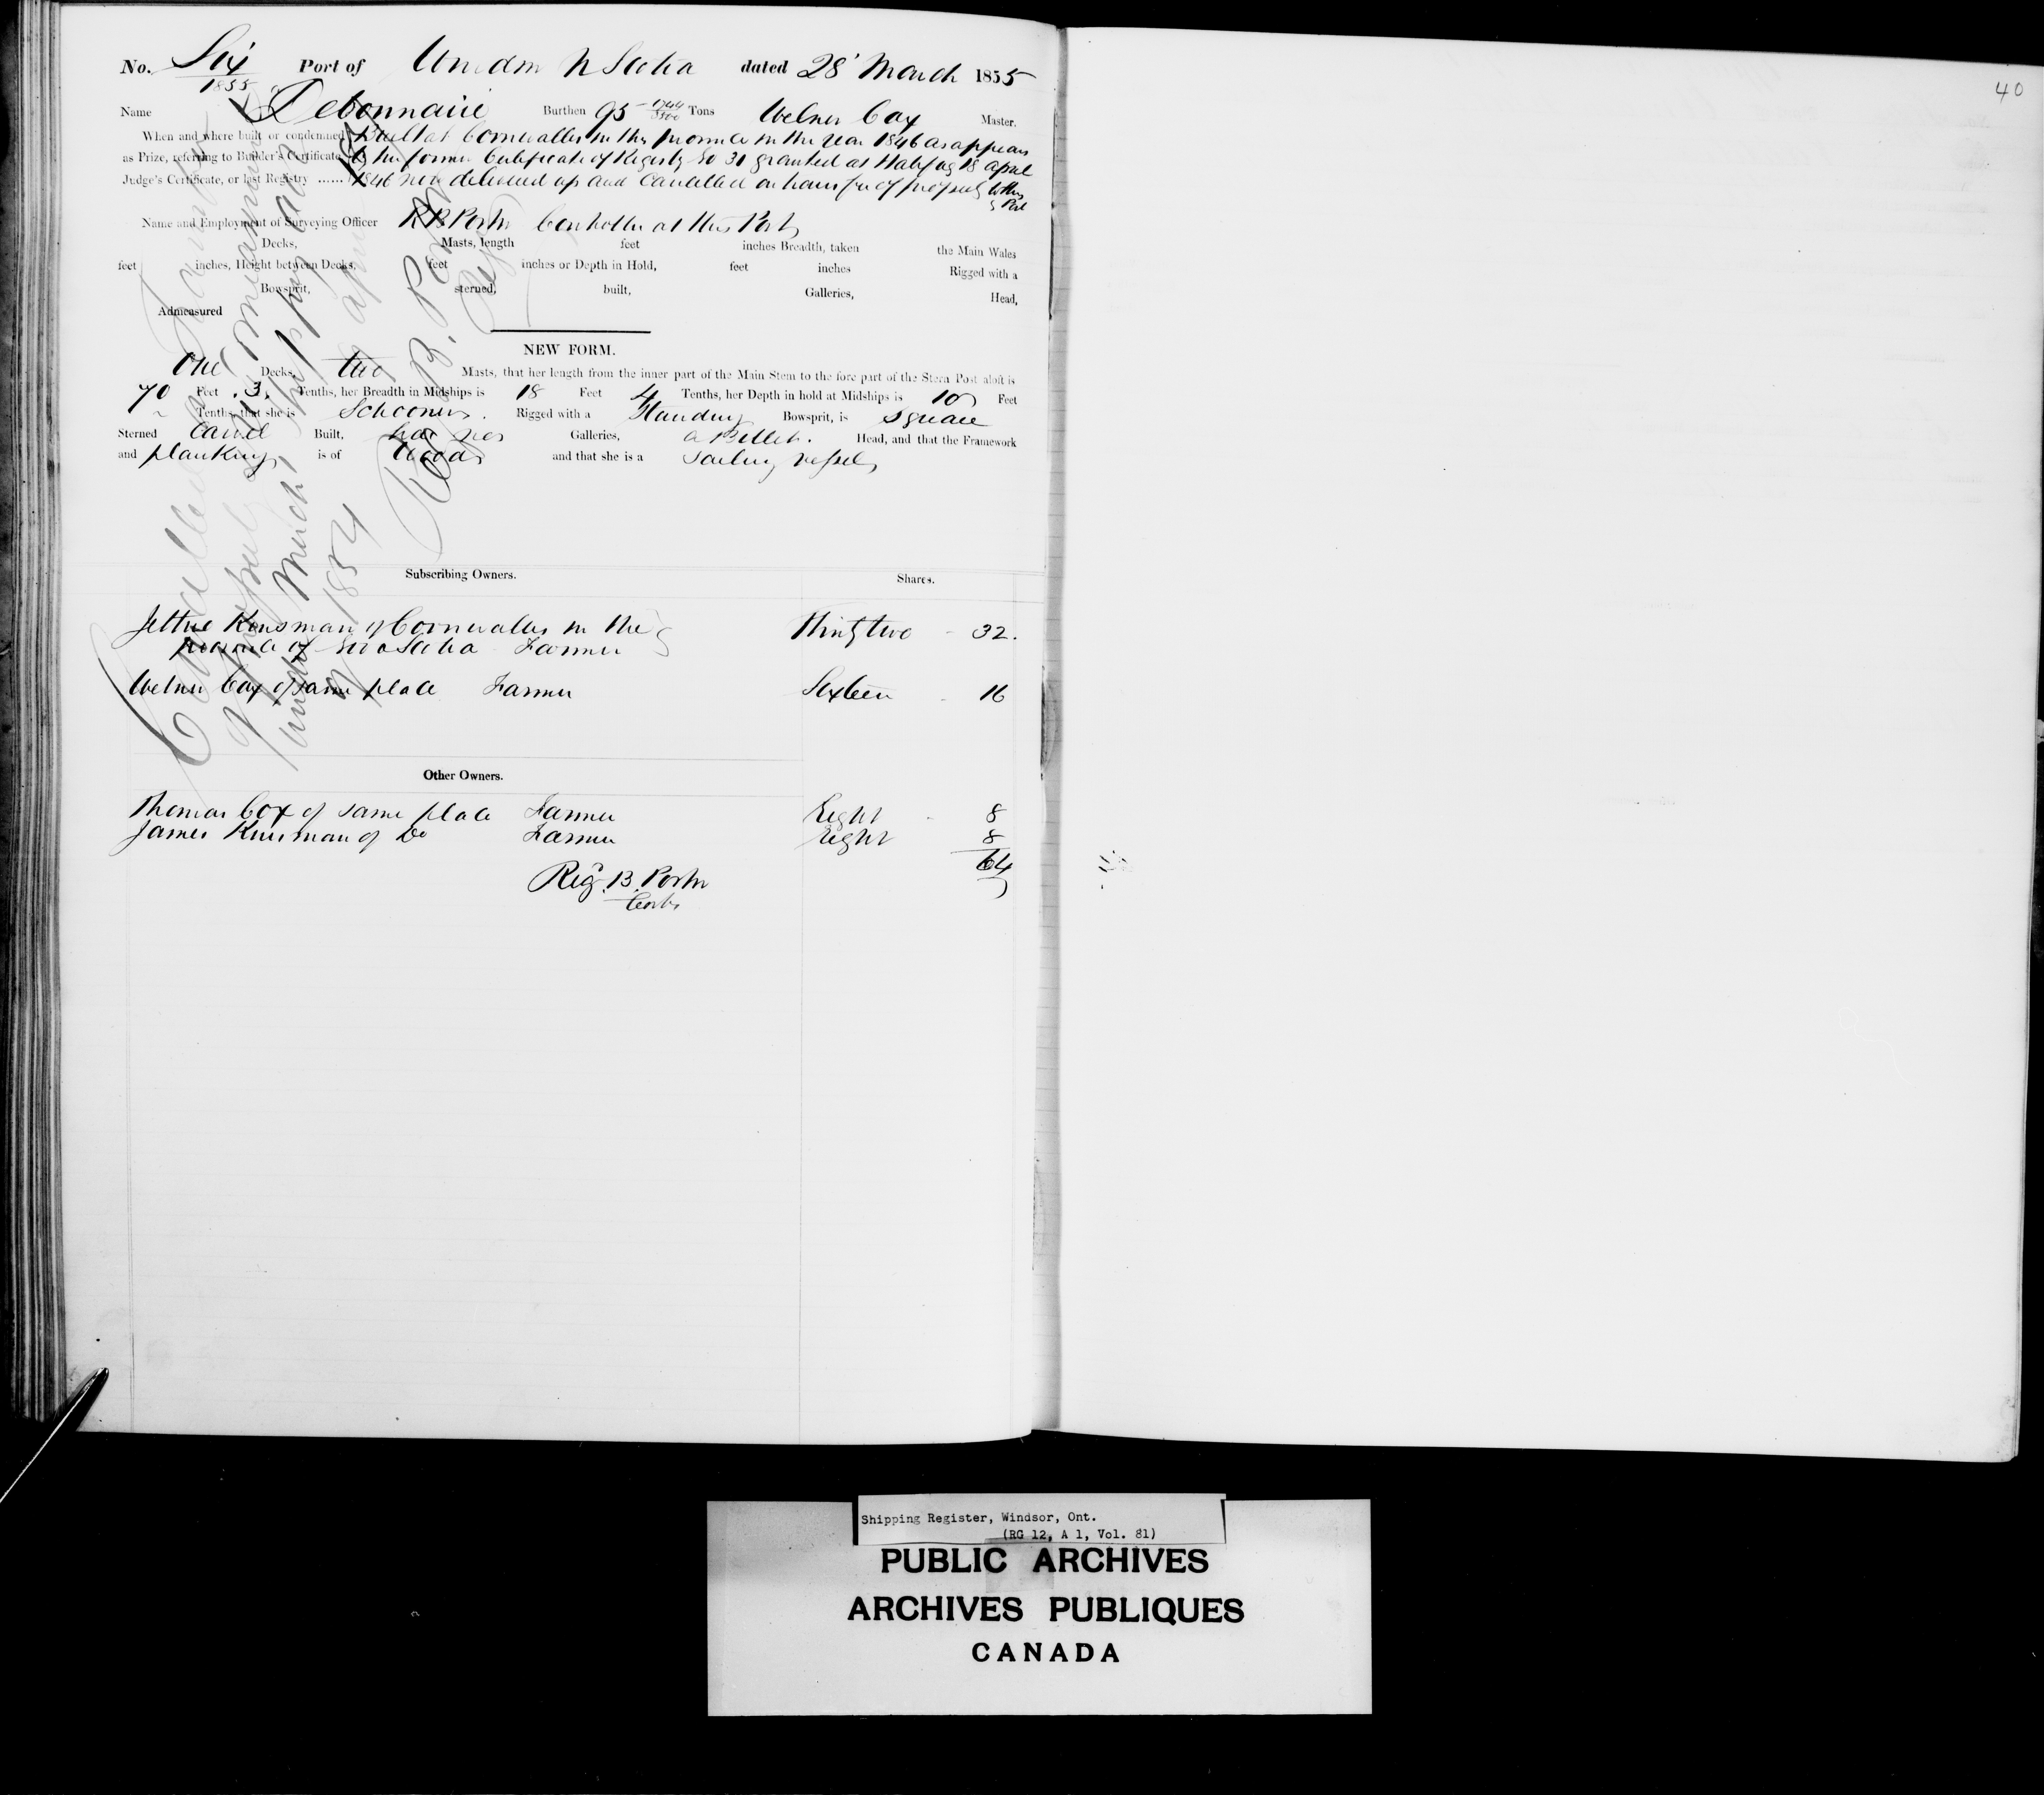 40
No. Six Port of Windsor N Scotia dated 28 March 1855
1855
Name Debonnaire Burthen 95 1744/3500 Tons Cox Master.
When and where built or condemned Built at Cornwallis in this province in the year 1846 as appears
as Prize, referring to Builder's Certificate by her former Certificate of Registry No 31 granted at Halifax 18 April
Judge's Certificate, or last Registry ...... 1846 now delivered up and Cancelled on transfer of property to this
Port
Name and Employment of Surveying Officer R B Porter Controller at this Port
Decks, Masts, length feet inches Breadth, taken the Main Wales
feet inches, Height between Decks, feet inches or Depth in Hold, feet inches Rigged with a
Bowsprit, sterned, built, Galleries, Head,
Admeasured
NEW FORM.
One Decks, two Masts, that her length from the inner part of the Main Stem to the fore part of the Stern Post aloft is
70 Feet .3. Tenths, her Breadth in Midships is 18 Feet 4 Tenths, her Depth in hold at Midships is 10 Feet
Tenths, that she is Schooner Rigged with a Standing Bowsprit, is square
Sterned Carvel Built, has no Galleries, a Billet. Head, and that the Framework
and planking is of Wood and that she is a sailing vessel
Cancelled
Merchant Shipping Act
1854
Reg B. Porter
Subscribing Owners. Shares.
Kinsman of Cornwallis in the
province of Nova Scotia Farmer Thirty two - 32.
Cox of same place Farmer Sixteen - 16
Other Owners.
Thomas Cox of same place Farmer Eight - 8
James Kinsman of Do Farmer Eight 8
64
Reg. B. Porter
Contr
Shipping Register, Windsor, Ont.
(RG 12, A 1, Vol. 81)
PUBLIC ARCHIVES
ARCHIVES PUBLIQUES
CANADA